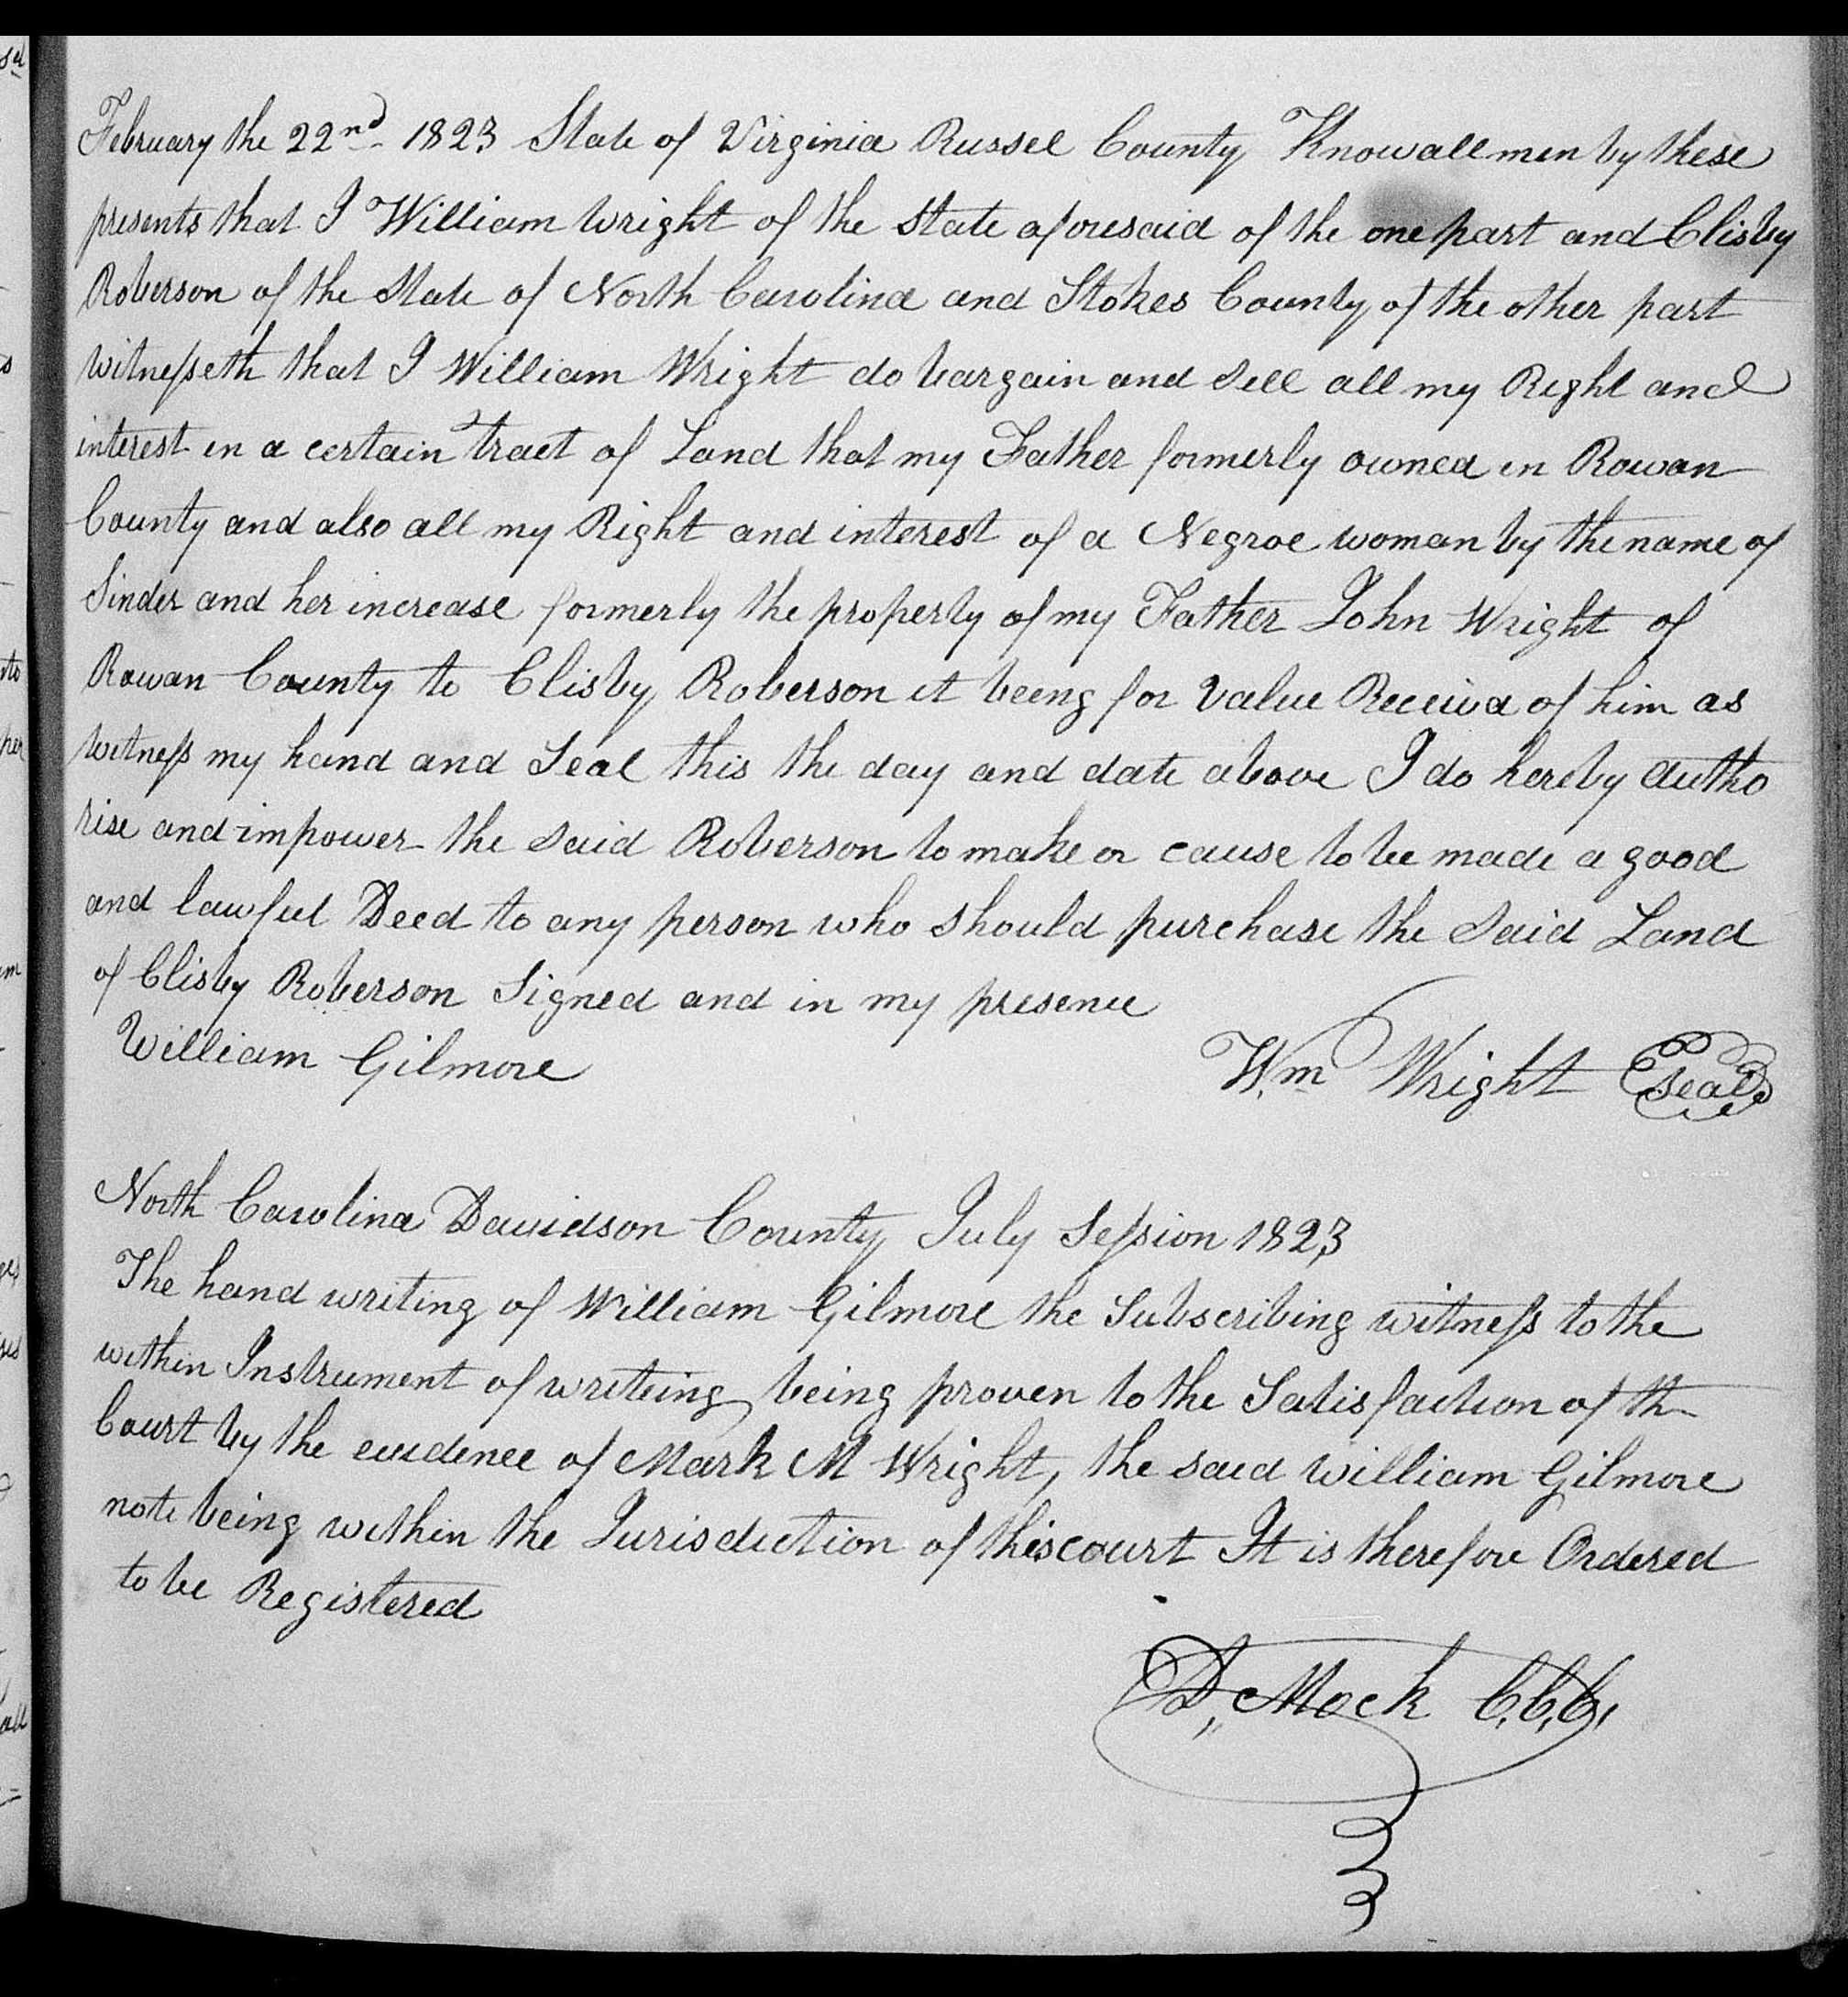 February the 22nd 1823 State of Virginia Russel County Know all men by these
presents that I William Wright of the State aforesaid of the one part and Clisby
Roberson of the State of North Carolina and Stokes County of the other part
witnesseth that I William Wright do bargain and Sell all my Right and
interest in a certain tract of Land that my Father formerly owned in Rowan
County and also all my Right and interest of a Negroe woman by the name of
Sinder and her increase formerly the property of my Father John Wright of
Rowan County to Clisby Roberson it being for Value Received of him as
witness my hand and Seal this the day and date above I do hereby autho
rise and impower the Said Roberson to make or cause to be made a good
and lawful Deed to any person who should purchase the Said Land
of Clisby Roberson Signed and in my presence
William Gilmore
Wm Wright Seal
North Carolina Davidson County July Session 1823
The hand writing of William Gilmore the Subscribing witness to the
within Instrument of writeing being proven to the Satisfaction of th
Court by the evidence of Mark M Wright, the said William Gilmore
note being within the Jurisdiction of this court It is therefore Ordered
to be Registered
D,, Mock C,C,C,